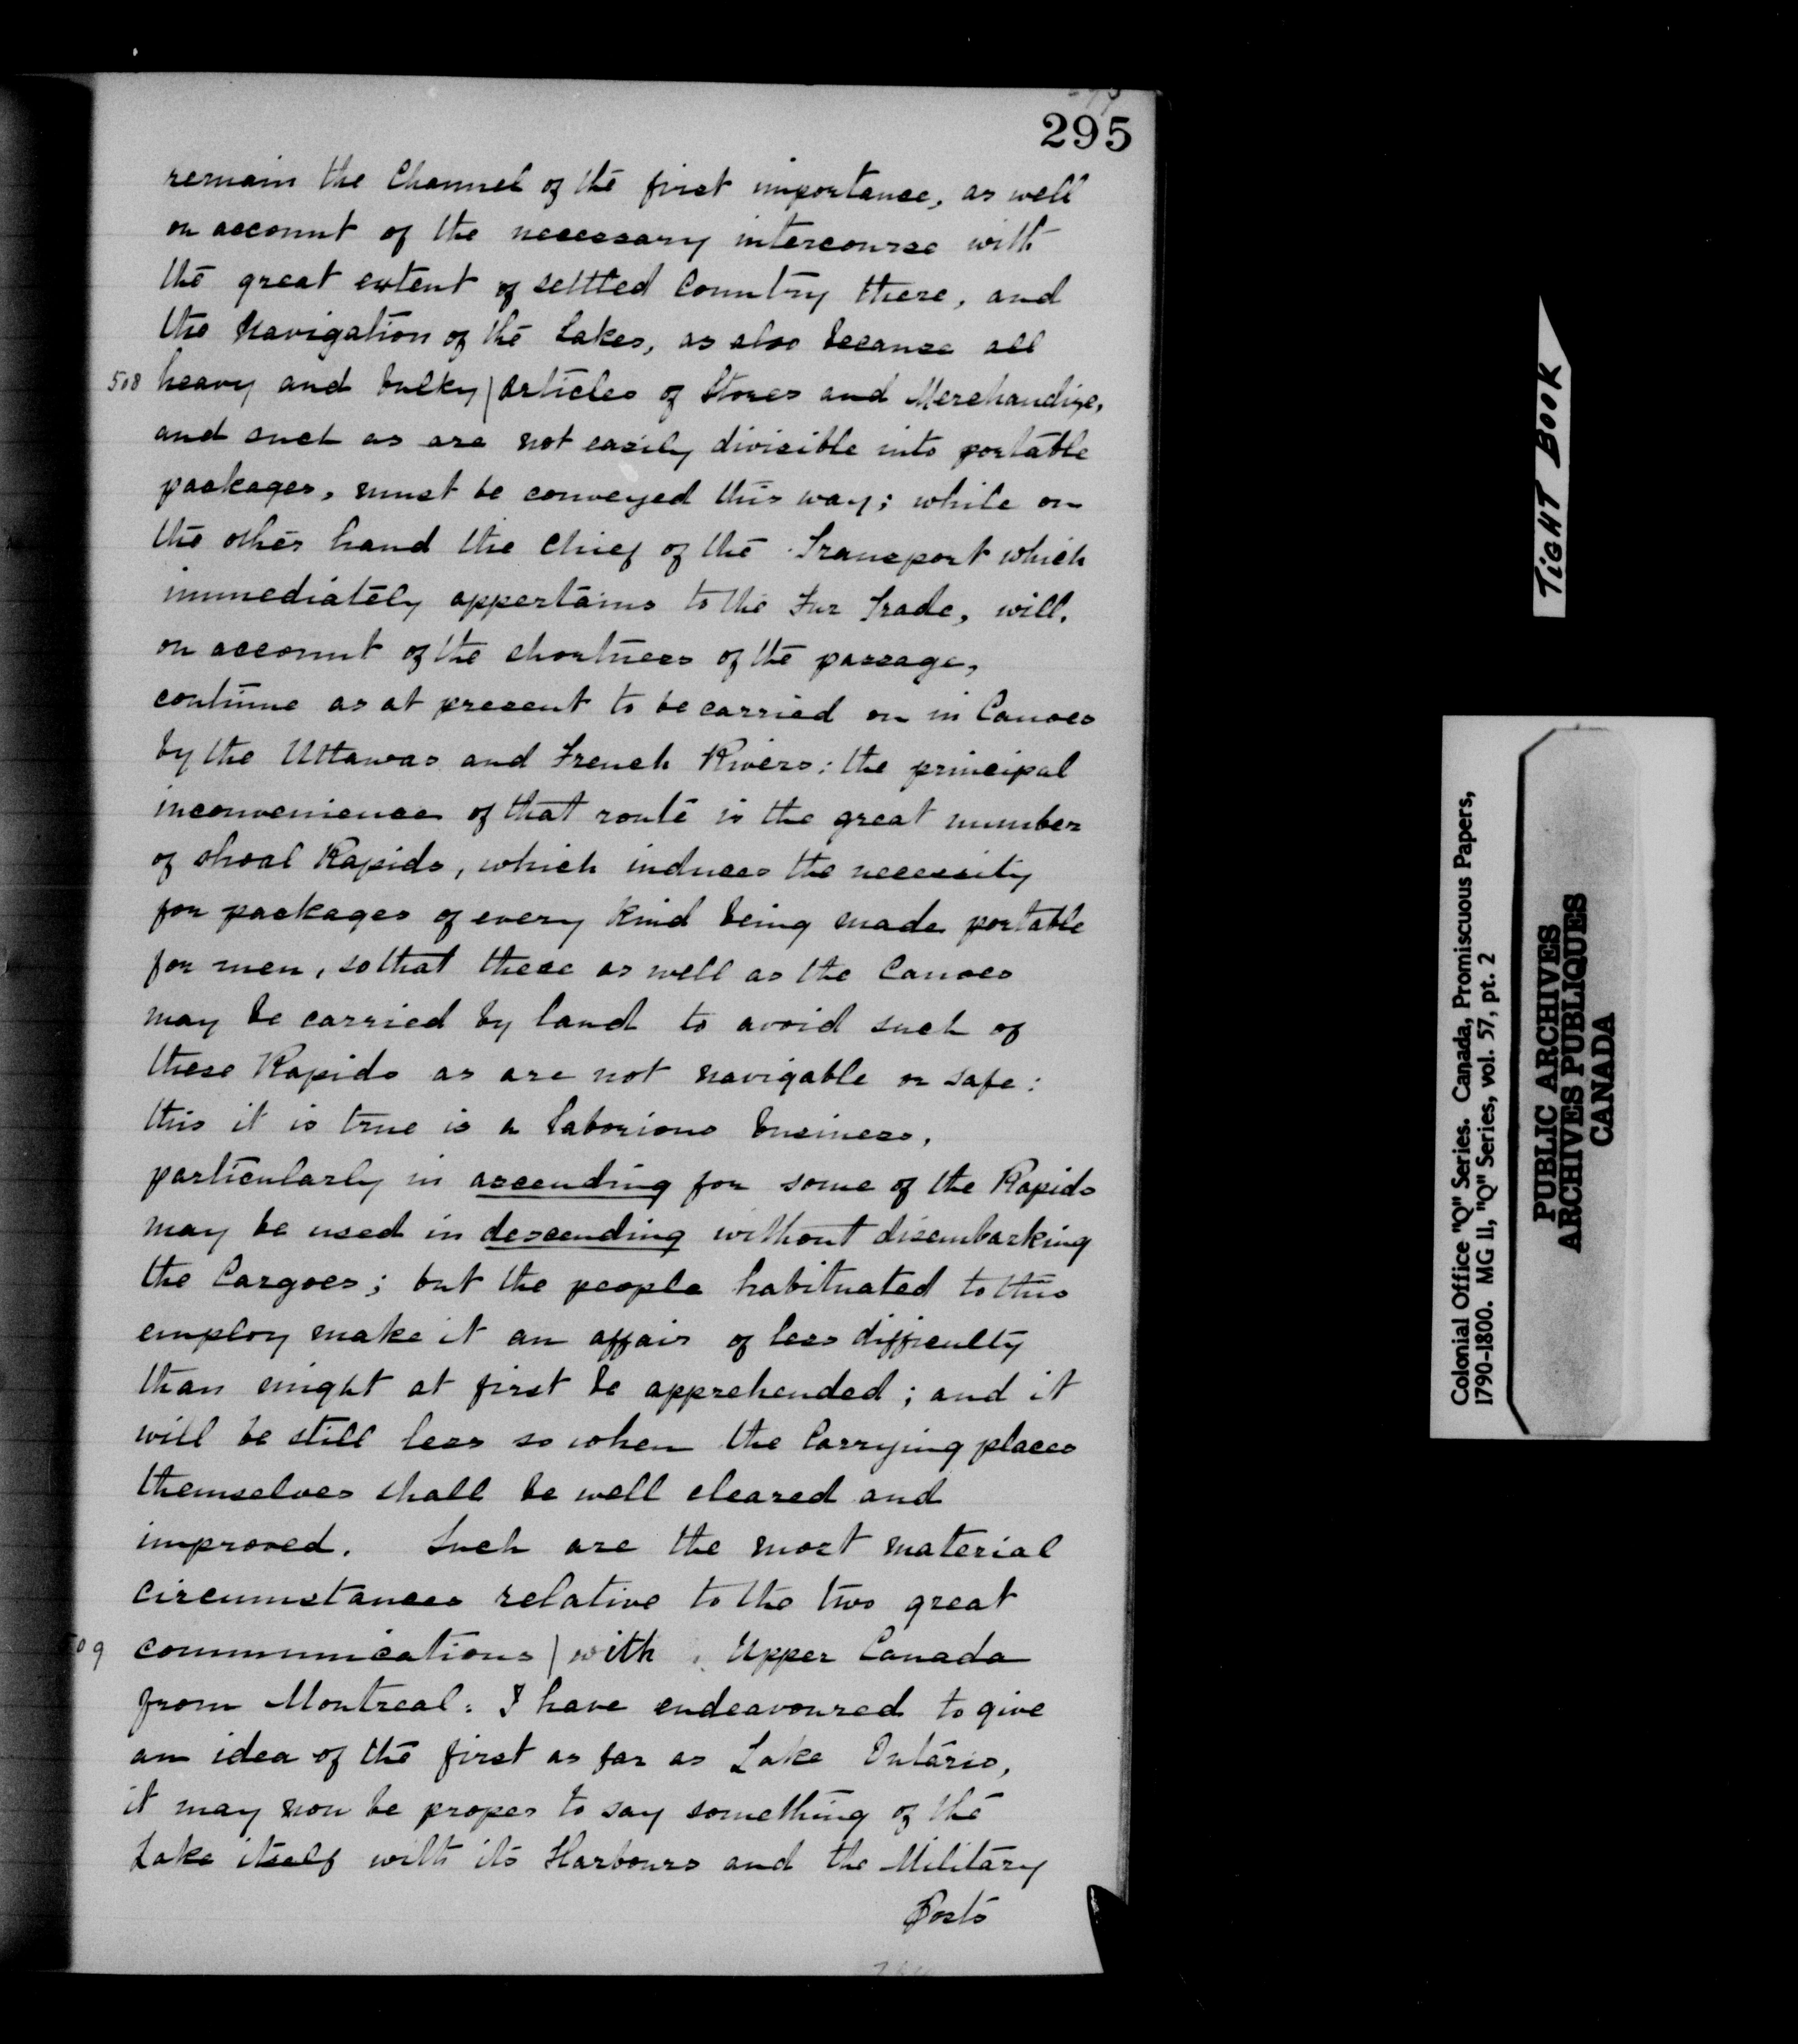 295
remain the Channel of the first importance, as well
on account of the necessary intercourse with
the great extent of settled Country there, and
the Navigation of the Lakes, as also because all
508 heavy and bulky | Articles of Stores and Merchandize,
and such as are not easily divisible into portable
packages, must be conveyed this way; while on
the other hand the chief of the Transport which
immediately appertains to the Fur Trade, will,
on account of the shortness of the passage,
continue as at present to be carried on in Canoes
by the Uttawas and French Rivers: the principal
inconvenience of that route is the great number
of shoal Rapids, which induces the necessity
for packages of every kind being made portable
for men, so that these as well as the Canoes
may be carried by land to avoid such of
these Rapids as are not navigable or safe:
this it is true is a laborious business,
particularly in ascending for some of the Rapids
may be used in descending without disembarking
the Cargoes; but the people habituated to this
employ make it an affair of less difficulty
than might at first be apprehended; and it
will be still less so when the Carrying places
themselves shall be well cleared and
improved. Such are the most material
circumstances relative to the two great
09 communications | with Upper Canada
from Montreal: I have endeavoured to give
an idea of the first as far as Lake Ontario,
it may now be proper to say something of the
Lake itself with its Harbours and the Military
Posts
TIGHT BOOK
Colonial Office "Q" Series. Canada, Promiscuous Papers,
1790-1800. MG 11, "Q" Series, vol. 57, pt. 2
PUBLIC ARCHIVES
ARCHIVES PUBLIQUES
CANADA